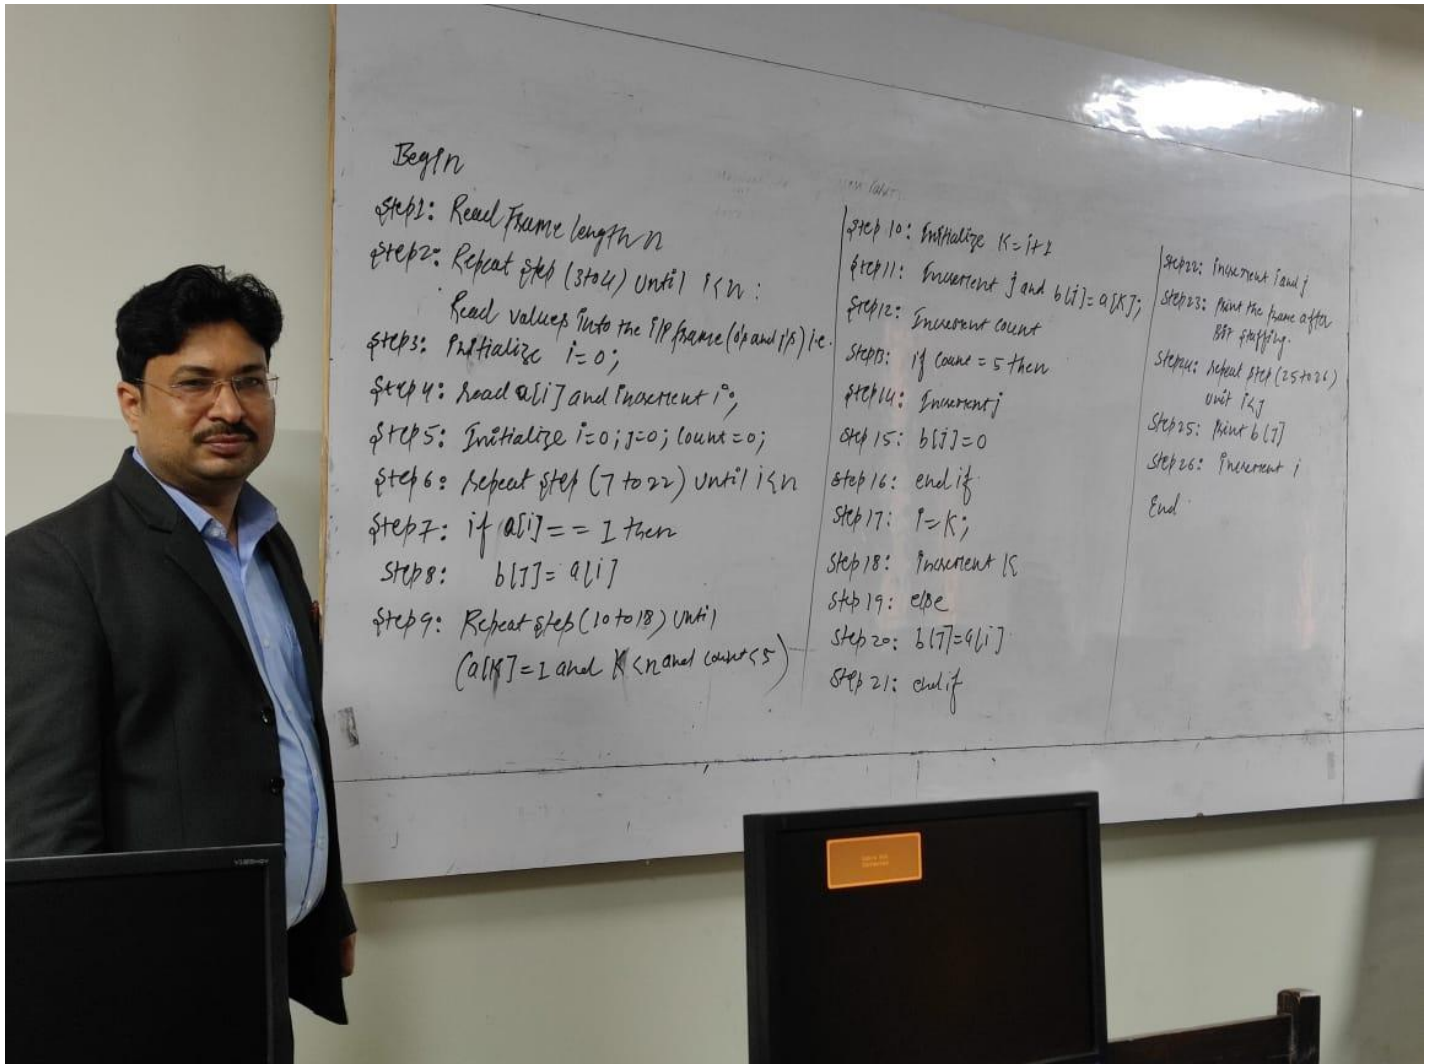 Begin
Step1: Read Frame length n
Step2: Repeat step (3to4) until i<n :
Read values into the i/p frame (0's and 1's) i.e.
Step3: Initialize i=0;
Step4: Read a[i] and increment i;
Step5: Initialize i=0; j=0; count=0;
Step6: Repeat step (7 to 22) until i<n
Step7: if a[i] == 1 then
Step8: b[J]= a[i]
Step9: Repeat step (10 to 18) until
(a[K]=1 and K<n and count<5)
Step 10: Initialize K=i+1
Step11: Increment j and b[j]=a[K];
Step12: Increment count
Step13: if count = 5 then
Step14: Increment j
Step 15: b[j]=0
Step 16: end if
Step 17: i=K;
Step 18: Increment K
Step 19: else
Step 20: b[J]=a[i]
Step 21: end if
Step22: increment i and j
Step23: Print the frame after
Bit stuffing.
Step24: repeat step (25 to 26)
unit i<j
Step25: Print b[J]
Step 26: Increment i
End